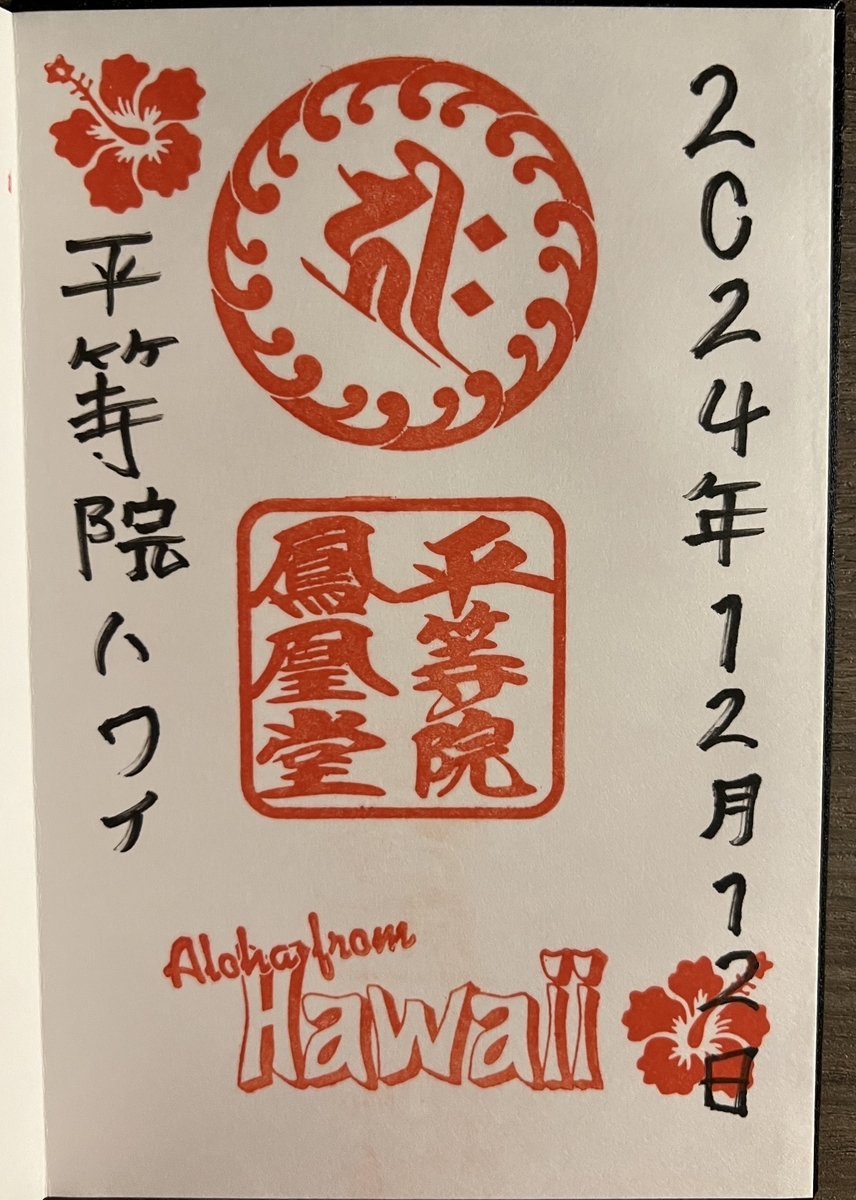 2024年12月12日
𑖮𑖿𑖨𑖱𑖾
平等院
鳳凰堂
平等院ハワイ
Aloha from
Hawaii